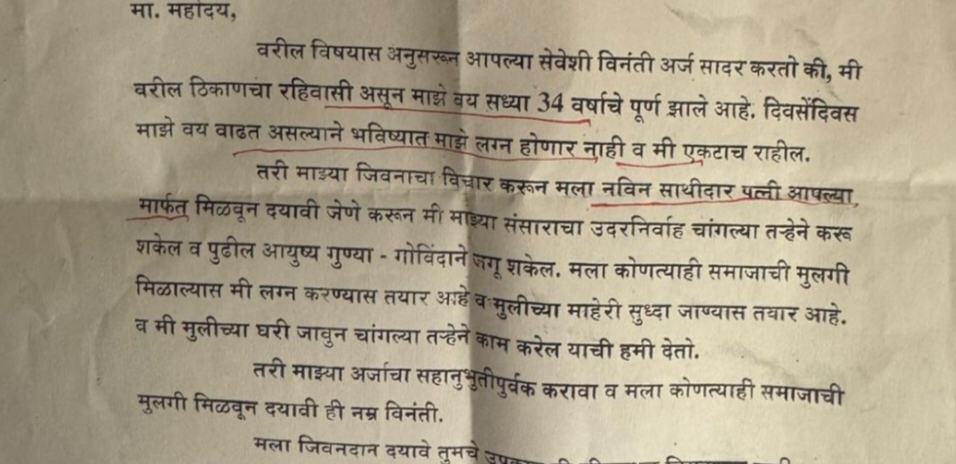 मा. महोदय,
वरील विषयास अनुसरून आपल्या सेवेशी विनंती अर्ज सादर करतो की, मी
वरील ठिकाणचा रहिवासी असून माझे वय सध्या 34 वर्षाचे पूर्ण झाले आहे. दिवसेंदिवस
माझे वय वाढत असल्याने भविष्यात माझे लग्न होणार नाही व मी एकटाच राहील.
तरी माझ्या जिवनाचा विचार करून मला नविन साथीदार पत्नी आपल्या
मार्फत मिळवून दयावी जेणे करून मी माझ्या संसाराचा उदरनिर्वाह चांगल्या तऱ्हेने करू
शकेल व पुढील आयुष्य गुण्या - गोविंदाने जगू शकेल. मला कोणत्याही समाजाची मुलगी
मिळाल्यास मी लग्न करण्यास तयार आहे व मुलीच्या माहेरी सुध्दा जाण्यास तयार आहे.
व मी मुलीच्या घरी जावुन चांगल्या तऱ्हेने काम करेल याची हमी देतो.
तरी माझ्या अर्जाचा सहानुभुतीपुर्वक करावा व मला कोणत्याही समाजाची
मुलगी मिळवून दयावी ही नम्र विनंती.
मला जिवनदान दयावे तुमचे